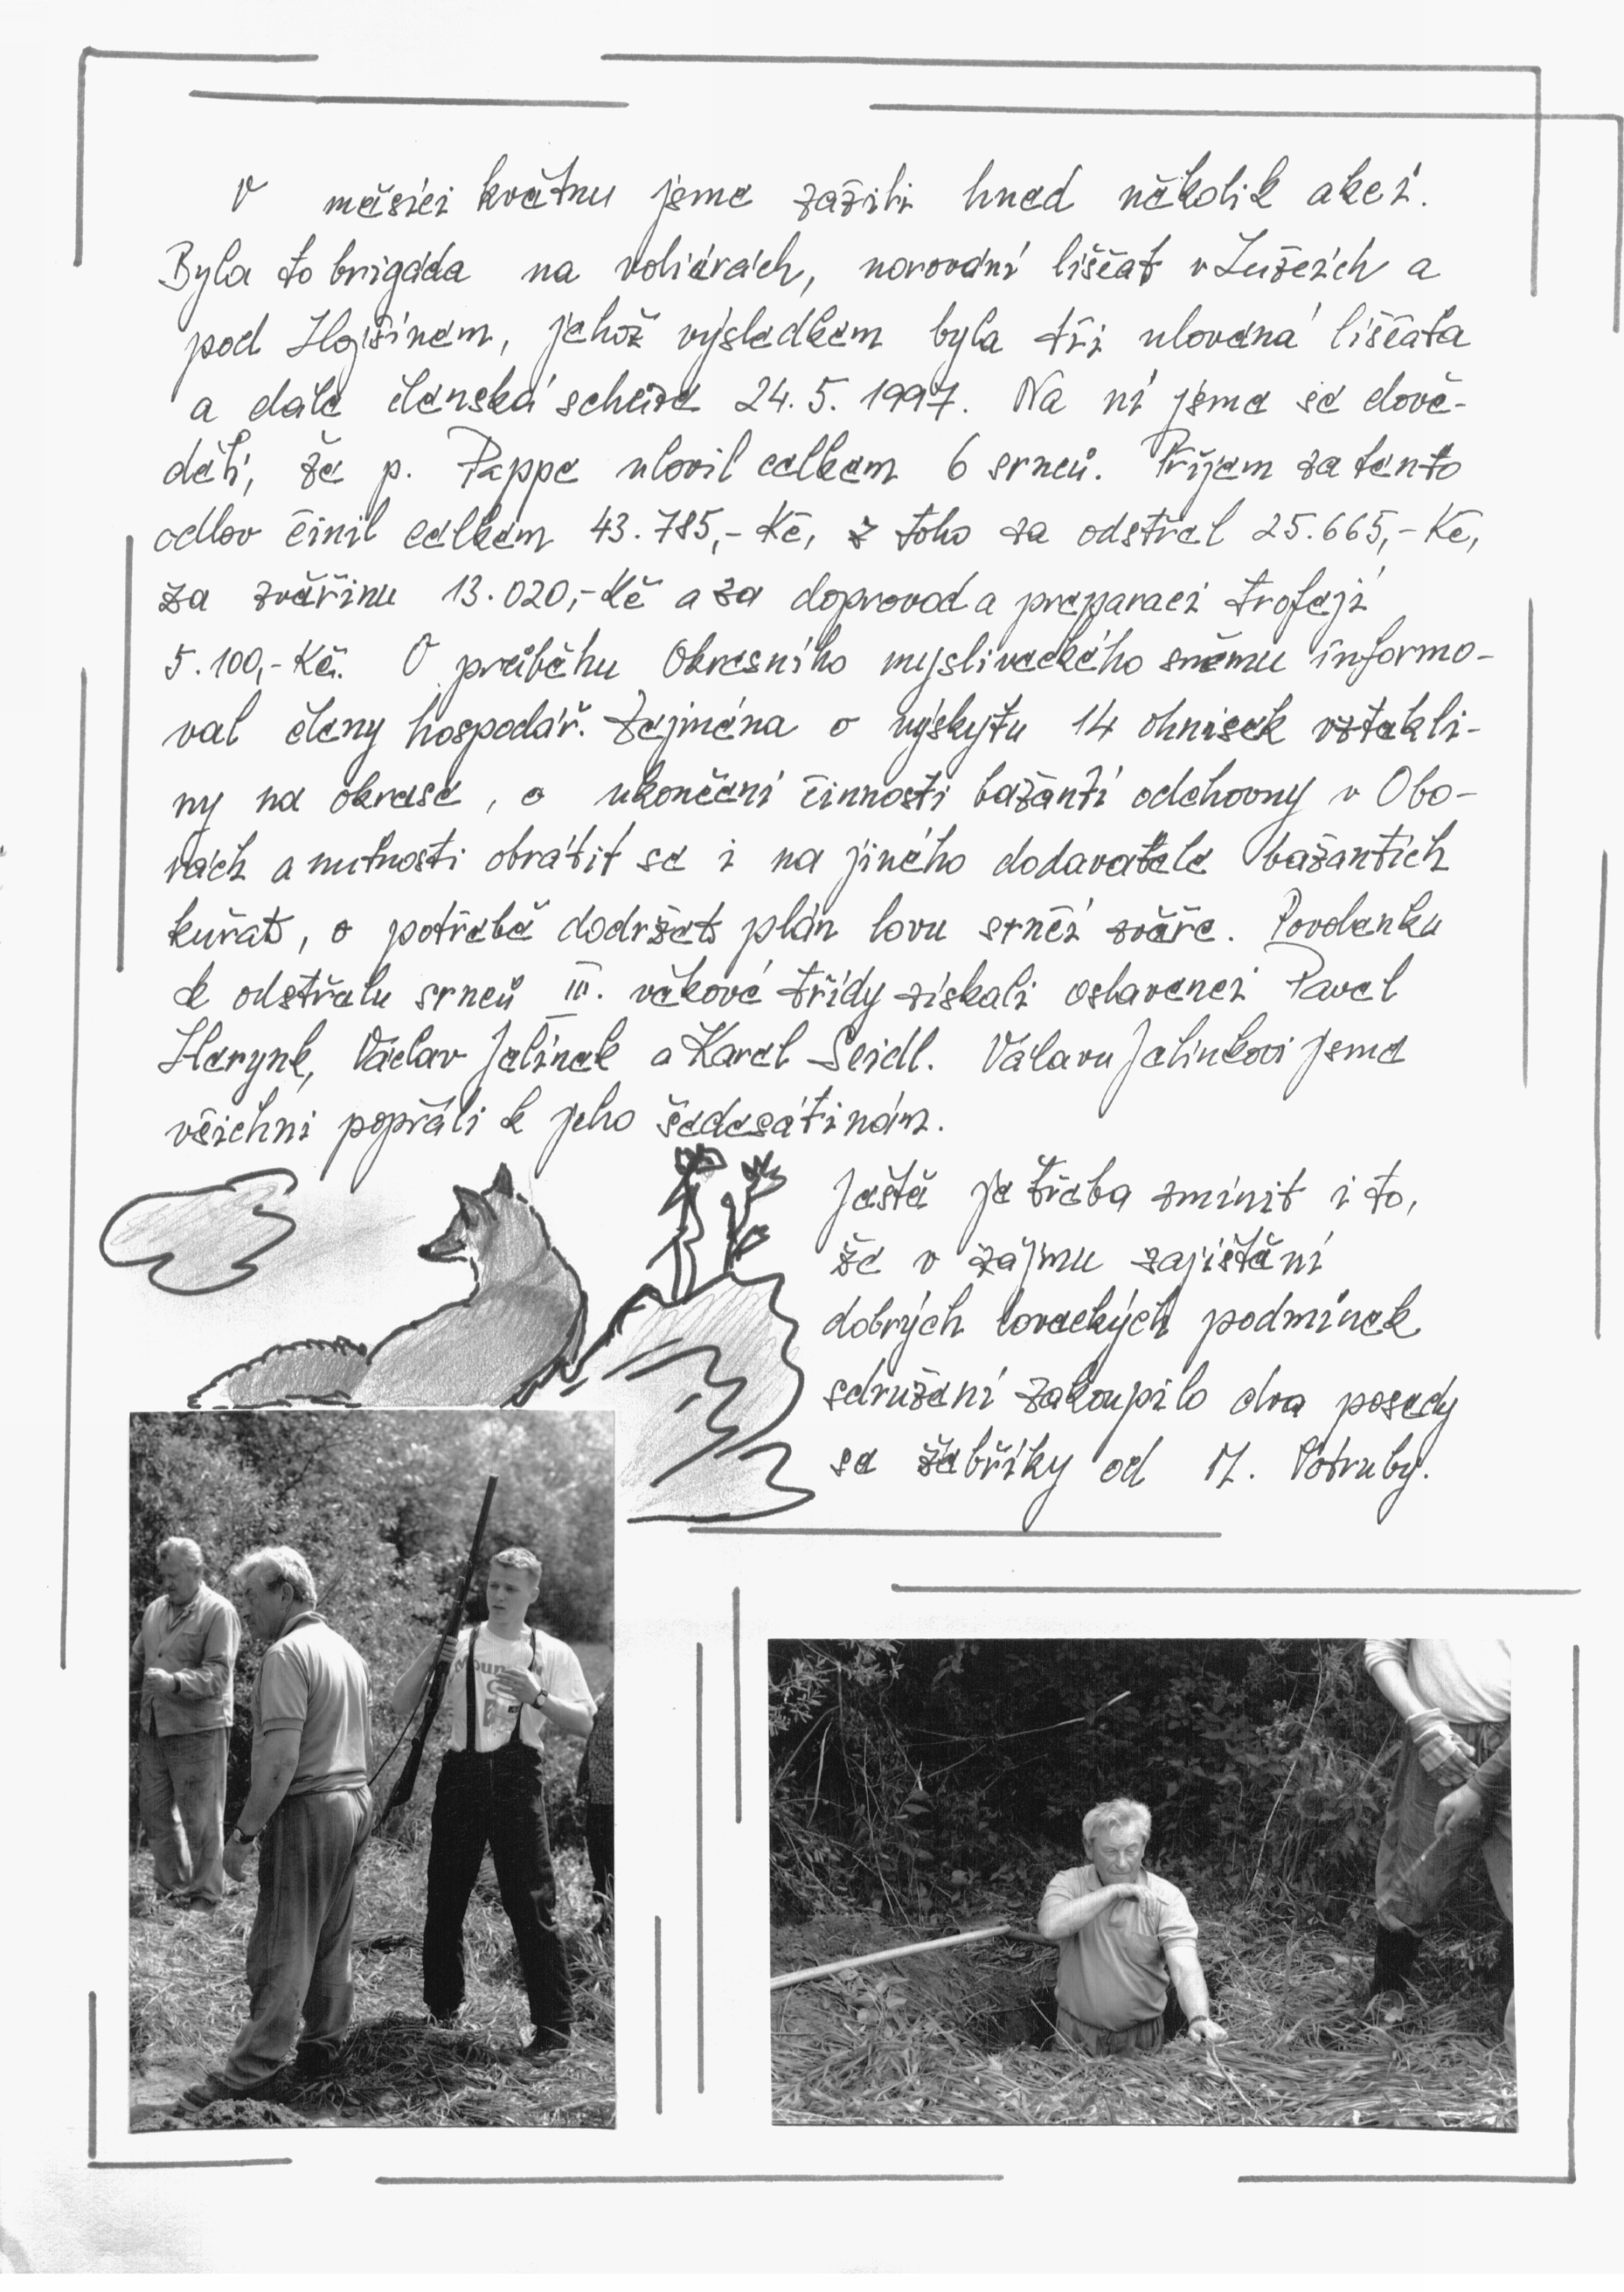 V měsíci květnu jsme zažili hned několik akcí.
Byla to brigáda na voliérách, norování liščat v Lužcích a
pod Hojšínem, jehož výsledkem byla tři ulovená liščata
a dále členská schůze 24. 5. 1997. Na ní jsme se dově-
děli, že p. Pappe ulovil celkem 6 srnců. Příjem za tento
odlov činil celkem 43.785,- Kč, z toho za odstřel 25.665,- Kč,
za zvěřinu 13.020,- Kč a za doprovod a preparaci trofejí
5.100,- Kč. O průběhu Okresního mysliveckého sněmu informo-
val členy hospodář. Zejména o výskytu 14 ohnisek vztekli-
ny na okrese, o ukončení činnosti bažantí odchovny v Obo-
rách a nutnosti obrátit se i na jiného dodavatele bažantích
kuřat, o potřebě dodržet plán lovu srnčí zvěře. Povolenku
k odstřelu srnců III. věkové třídy získali oslavenci Pavel
Herynk, Václav Jelínek a Karel Seidl. Válavu Jelínkovi jsme
všichni popřáli k jeho šedesátinám.
Ještě je třeba zmínit i to,
že v zájmu zajištění
dobrých loveckých podmínek
sdružení zakoupilo dva posedy
se žebříky od M. Votruby.
Moun